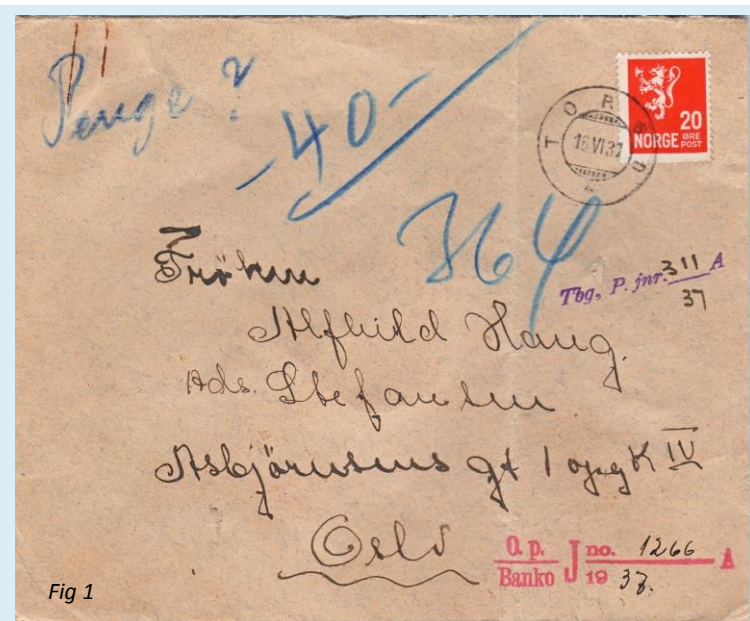 Penge?
-40-
TORSBU
16 VI 37
20
NORGE ØRE POST
364
Tbg, P. jnr. 311 A
37
Fröken
Alfhild Haug.
Ads. Stefansen
Asbjörnsens gt 1 opg K IV
Oslo
O.p. Banko J no. 1266 A
19 37.
Fig 1